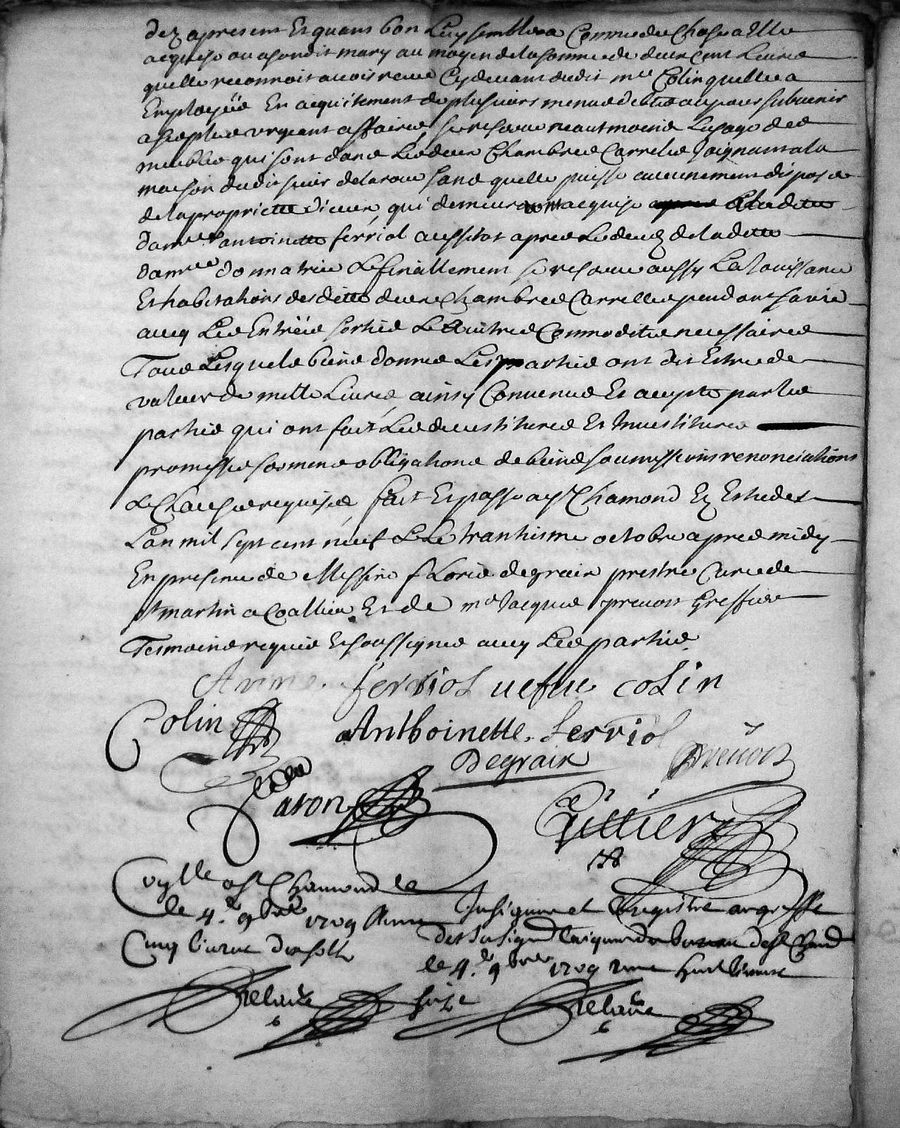 dez apresent Et quant bon Luy semblera Comme de Chose a Elle
acquise ou a sondit mary au moyen de la somme de deux Cent Livres
quelle reconnoit avoir receu Cydevant dudit mre Colin quelle a
Employée En acquitement de plusieurs menue debtes ou pour subvenir
a ses plus urgent affaires se reserve neautmoins Lusage des
meubles qui sont dans Les deux Chambres Carrelées Joignant a la
maison dudit sieur delaroue sans quelle puisse aucunement disposer
de la propriette diceux qui demeurera acquise a Laditte
damlle antoinette ferriol aussitot apres Le deces de laditte
damlle donnatrice & finallement se reserve aussy La Jouissance
Et habitations desdittes deux Chambres Carrellées pendant sa vie
avec Les Entrées sorties & autres Commodites necessaires
Tous Lesquels biens donnes Les parties ont dit Estre de
valeur de mille Livres ainsy Convenus Et acepte par les
parties qui ont fait Les devestitures Et Investitures
promesses sermens obligations de biens soumissions renonciations
& Clauses requises fait Et passe a St Chamond Ez Estudes
Lan mil sept cent neuf & Le trantisme octobre apres midy
En presence de Messire floris degraix prestre Cure de
St martin a Coallieu Et de me Jacques prevost Greffier
Temoins requis Et soussignes avec Les parties
Anne ferriol vefve colin
Colin Anthoinette ferriol
Degraix Prevost
aron
Cuttier
Coylle a St Chamond le
le 4.e 9bre 1709 Reçu
Cinq livres dix solz
Delarüe
Insignue et Enregistre au greffe
des Insignuations du bureau de St Chamd
le 4.e 9bre 1709 reçu huit livres
seize
Delarüe